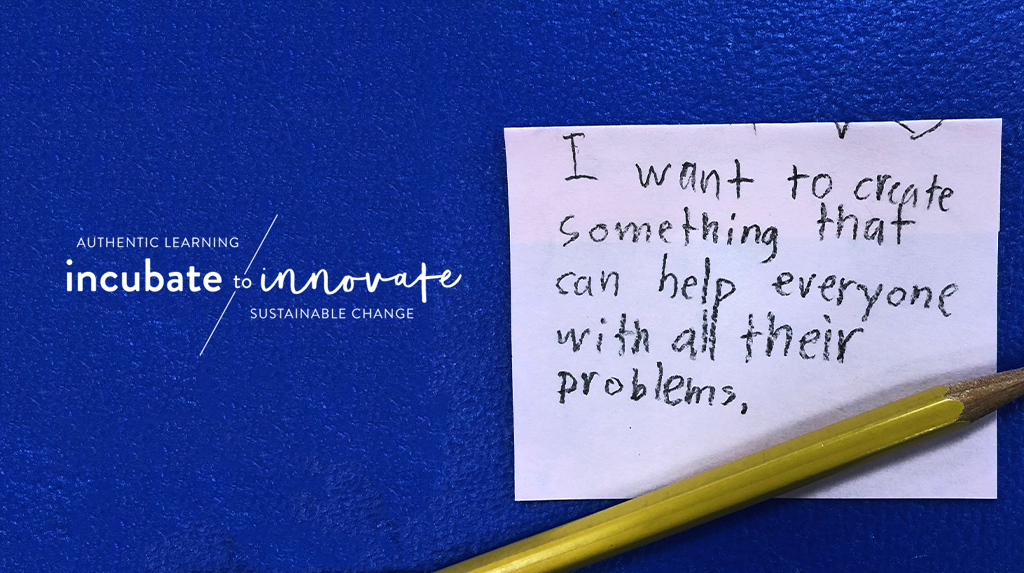 AUTHENTIC LEARNING
incubate to innovate
SUSTAINABLE CHANGE
I want to create
something that
can help everyone
with all their
problems.